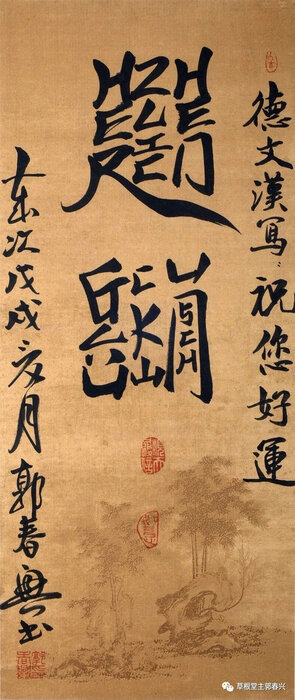 德文漢寫:祝您好運
HERZLICHEN
GLÜCKWUNSCH
歲次戊戌亥月郭春興书
草根堂主郭春兴